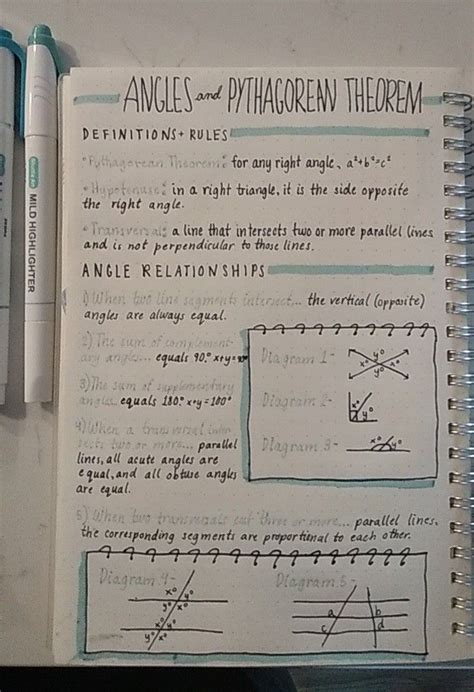 ANGLES and PYTHAGOREAN THEOREM
DEFINITIONS + RULES
• Pythagorean Theorem: for any right angle, a²+b²=c²
• Hypotenuse: in a right triangle, it is the side opposite
the right angle.
• Transversal: a line that intersects two or more parallel lines
and is not perpendicular to those lines.
ANGLE RELATIONSHIPS
1) When two line segments intersect... the vertical (opposite)
angles are always equal.
2) The sum of complement-
ary angles... equals 90°. x+y=90°
3) The sum of supplementary
angles... equals 180° x+y=180°
4) When a transversal inter-
sects two or more... parallel
lines, all acute angles are
equal, and all obtuse angles
are equal.
Diagram 1-
x° y° x° y°
Diagram 2-
x° y°
Diagram 3-
x° y°
5) When two transversals cut three or more... parallel lines,
the corresponding segments are proportional to each other.
Diagram 4-
x° y°
y° x°
x° y°
y° x°
Diagram 5-
a b
c d
MILD HIGHLIGHTER